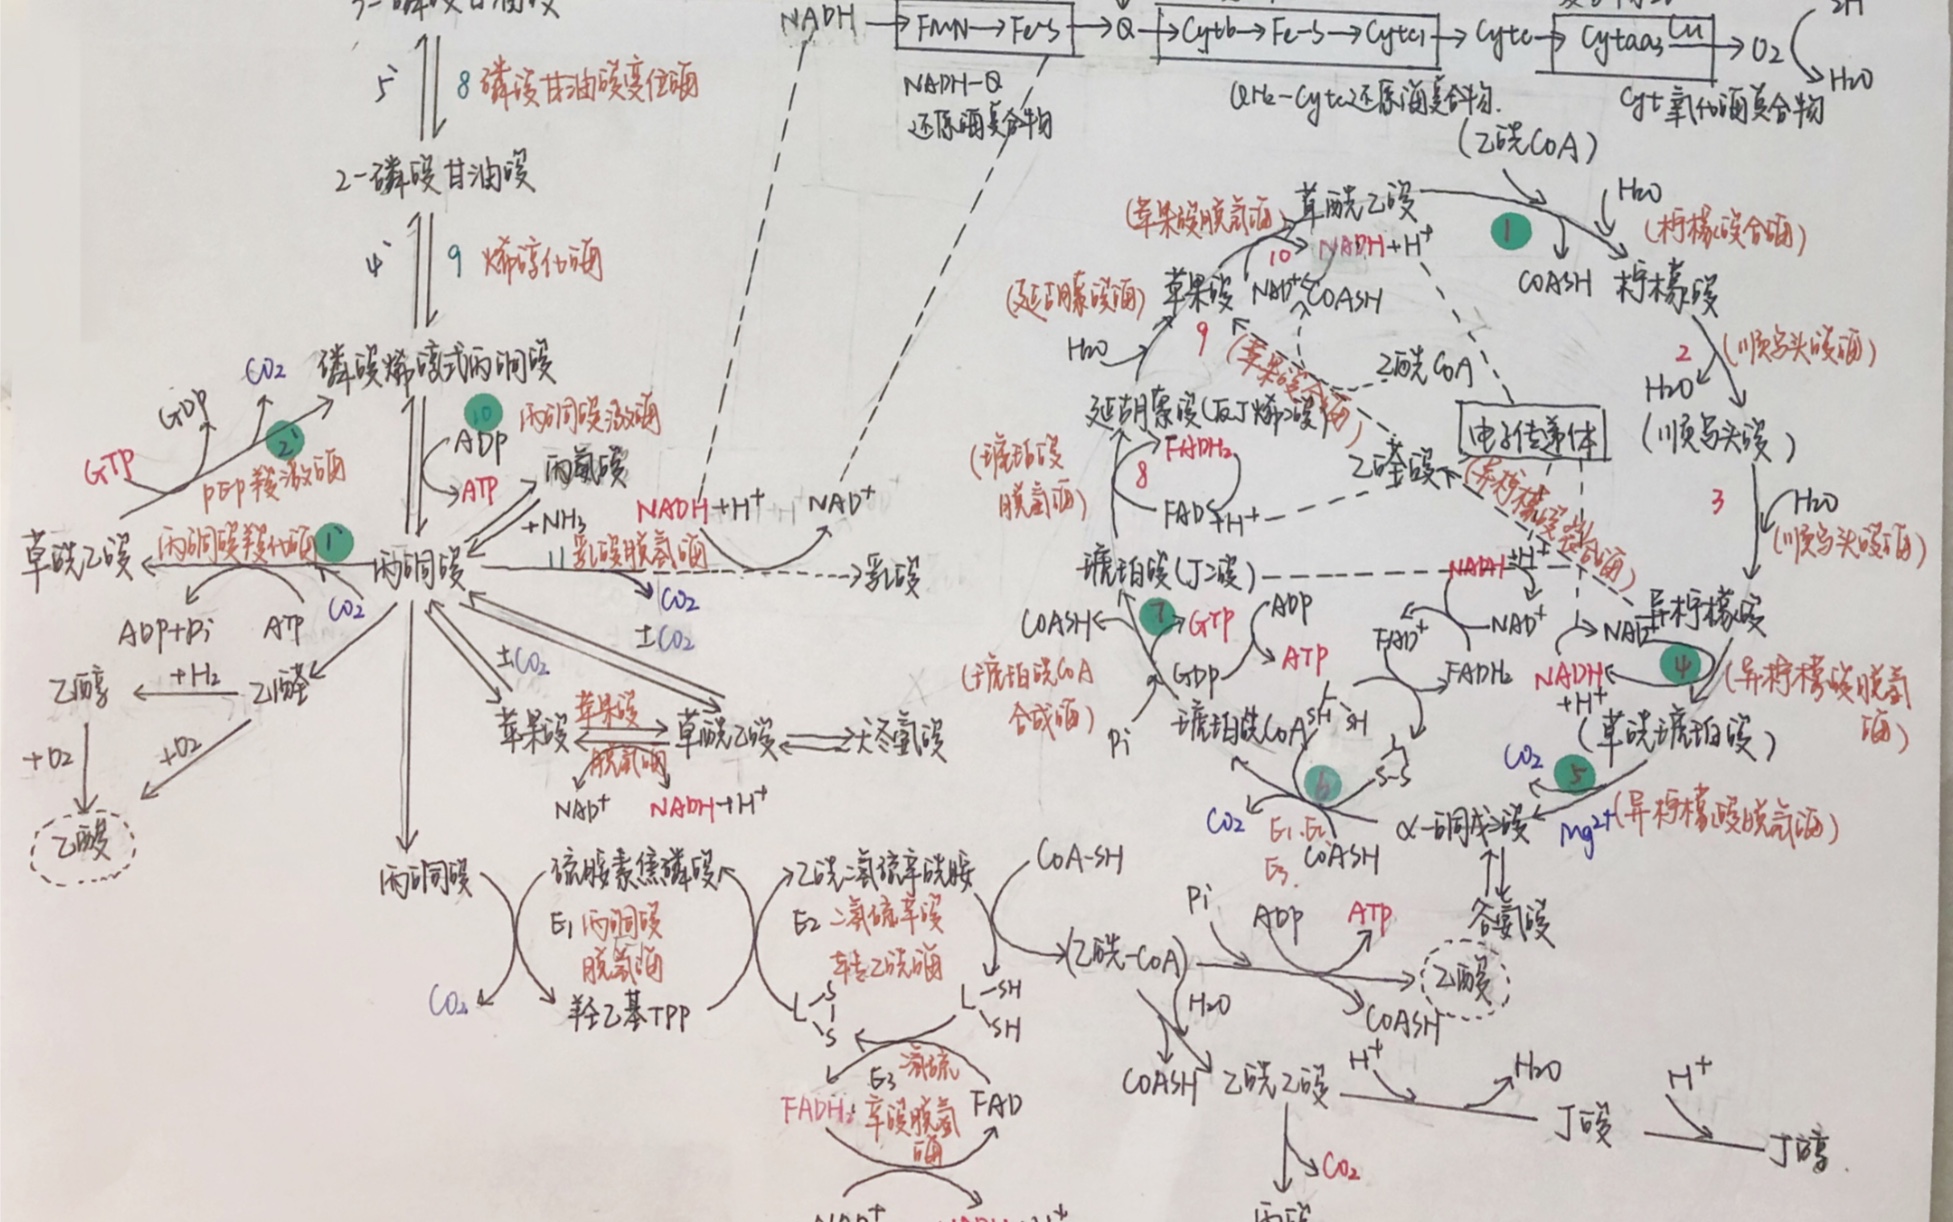 NADH → FMN → Fe-S → Q → Cytb → Fe-S → Cytc1 → Cytc → Cytaa3 Cu → O2
2H
H2O
NADH-Q
还原酶复合物
QH2-Cytc还原酶复合物.
Cyt氧化酶复合物
3-磷酸甘油酸
5' 8 磷酸甘油酸变位酶
2-磷酸甘油酸
4' 9 烯醇化酶
磷酸烯醇式丙酮酸
CO2
GDP
GTP
2'
PEP羧激酶
10 丙酮酸激酶
ADP
ATP
丙氨酸
+NH3
草酰乙酸
丙酮酸羧化酶 1'
丙酮酸
ADP+Pi
ATP
CO2
11 乳酸脱氢酶
NADH+H+
NAD+
乳酸
CO2
±CO2
±CO2
乙醇
+H2
乙醛
+O2
+O2
乙酸
苹果酸
苹果酸
脱氢酶
草酰乙酸
天冬氨酸
NAD+
NADH+H+
丙酮酸
硫胺素焦磷酸
E1 丙酮酸
脱氢酶
CO2
羟乙基TPP
乙酰二氢硫辛酰胺
E2 二氢硫辛酸
转乙酰酶
CoA-SH
L
S
S
L
SH
SH
E3 二氢硫
辛酸脱氢
酶
FADH2
FAD
NAD+
NADH+H+
(乙酰CoA)
草酰乙酸
1
H2O
(柠檬酸合酶)
COASH
柠檬酸
2
(顺乌头酸酶)
H2O
(顺乌头酸)
3
H2O
(顺乌头酸酶)
异柠檬酸
NAD+
4
NADH
+H+
(异柠檬酸脱氢
酶)
(草酰琥珀酸)
CO2
5
Mg2+
(异柠檬酸脱氢酶)
α-酮戊二酸
谷氨酸
6
CO2
E1.E2
E3.
COASH
SH
SH
S-S
FAD+
FADH2
NAD+
NADH+H+
NAD+
琥珀酰CoA
7
GTP
GDP
ADP
ATP
Pi
COASH
(琥珀酰CoA
合成酶)
琥珀酸(丁二酸)
(琥珀酸
脱氢酶)
8
FADH2
FAD+H+
延胡索酸(反丁烯二酸)
H2O
(延胡索酸酶)
苹果酸
9
(苹果酸脱氢酶)
10
NADH+H+
NAD+
COASH
乙酰CoA
(苹果酸合酶)
乙醛酸
(异柠檬酸裂合酶)
电子传递体
(乙酰-CoA)
Pi
ADP
ATP
乙酸
COASH
H2O
COASH
乙酰乙酸
H+
H2O
丁酸
H+
丁醇.
CO2
丙酮